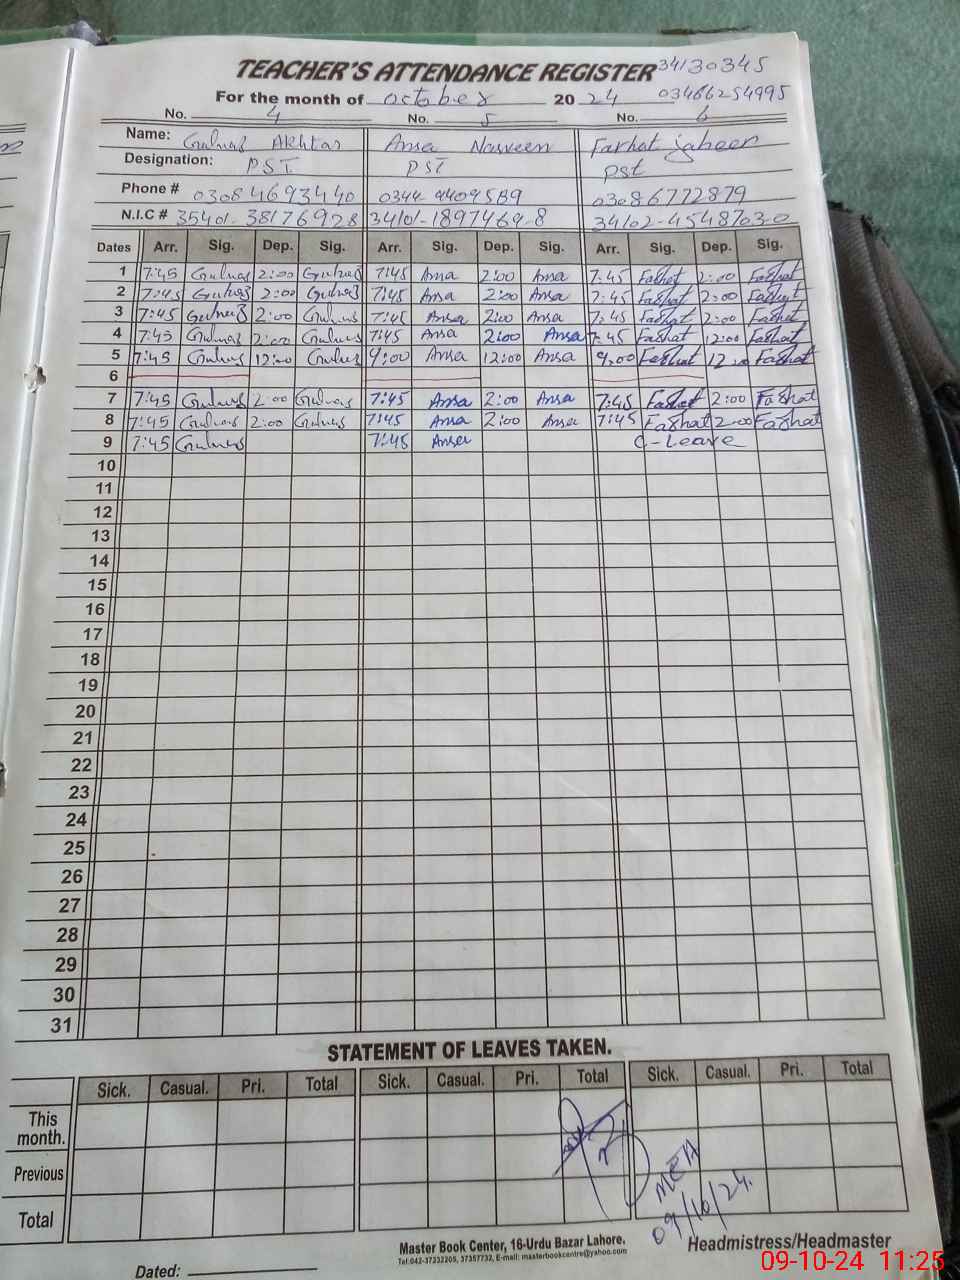 TEACHER'S ATTENDANCE REGISTER 34130345
For the month of October 2024 03466254995
No. 4 No. 5 No. 6
Name: Gulnaz Akhtar Ansa Nasveen Farhat jabeen
Designation: PST PST PST
Phone # 03084693440 0344-4409589 03086772879
N.I.C # 35401-38176928 34101-1897469-8 34102-4548703-0
Dates Arr. Sig. Dep. Sig. Arr. Sig. Dep. Sig. Arr. Sig. Dep. Sig.
1 7:45 Gulnaz 2:00 Gulnaz 7:45 Ansa 2:00 Ansa 7:45 Farhat 2:00 Farhat
2 7:45 Gulnaz 2:00 Gulnaz 7:45 Ansa 2:00 Ansa 7:45 Farhat 2:00 Farhat
3 7:45 Gulnaz 2:00 Gulnaz 7:45 Ansa 2:00 Ansa 7:45 Farhat 2:00 Farhat
4 7:45 Gulnaz 2:00 Gulnaz 7:45 Ansa 2:00 Ansa 7:45 Farhat 12:00 Farhat
5 7:45 Gulnaz 12:00 Gulnaz 9:00 Ansa 12:00 Ansa 9:00 Farhat 12:00 Farhat
6
7 7:45 Gulnaz 2:00 Gulnaz 7:45 Ansa 2:00 Ansa 7:45 Farhat 2:00 Farhat
8 7:45 Gulnaz 2:00 Gulnaz 7:45 Ansa 2:00 Ansa 7:45 Farhat 2:00 Farhat
9 7:45 Gulnaz 7:45 Ansa C-Leave
10
11
12
13
14
15
16
17
18
19
20
21
22
23
24
25
26
27
28
29
30
31
STATEMENT OF LEAVES TAKEN.
Sick. Casual. Pri. Total Sick. Casual. Pri. Total Sick. Casual. Pri. Total
This month.
Previous
Total
MEA
09/10/24.
Master Book Center, 16-Urdu Bazar Lahore.
Tel:042-37232205, 37357732, E-mail: masterbookcentre@yahoo.com
Headmistress/Headmaster
Dated:
09-10-24 11:25